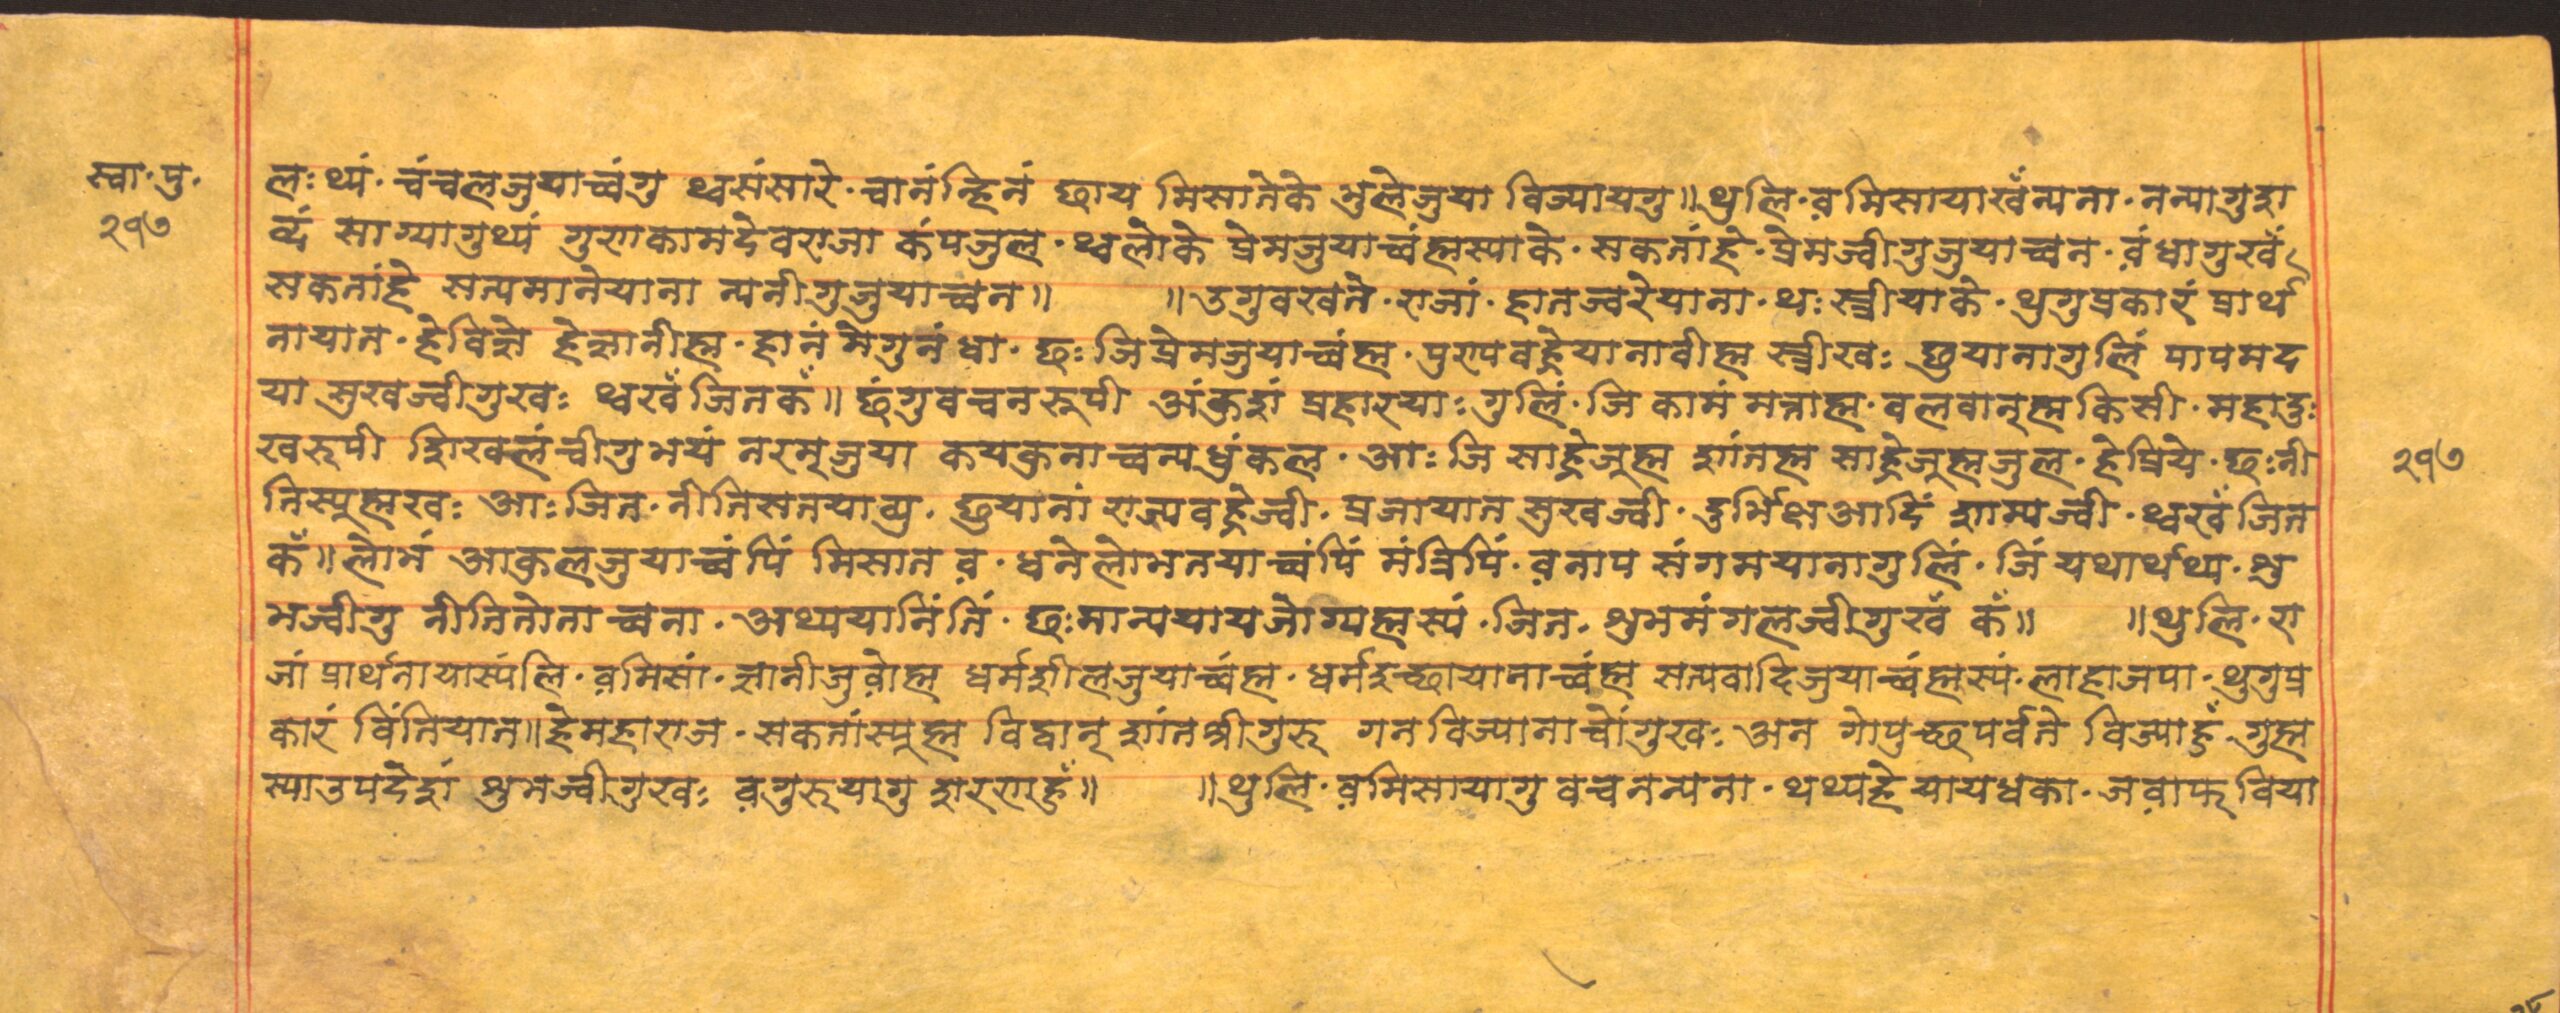 स्वा॰पु॰
२१७
लः थ्यं॰ चंचलजुयाच्वंगु थ्वसंसारे॰ च्वानंन्हिनं छाय मिसातेके भुलेजुया विज्यायगु॥ थुलि॰ व़मिसायाखँन्यना॰ नन्यागुशा
व्दं साग्यागुथ्यं गुराकामदेवराजा कंपजुल॰ थ्वलोके प्रेमजुयाच्वंह्मस्याके॰ सकतांहे॰ प्रेमज्वीगुजुयाच्वन॰ व़ंधागुखँ
सकतांहे सत्यमानेयाना न्यनीगुजुयाच्वन॥ ॥उगुवखतॆ॰ राजां॰ हातज्वरेयाना॰ थः स्त्रीयाके॰ थुगुप्रकारं प्रार्थ
नायात॰ हेविज्ञे हेज्ञानीह्म॰ हानं मेगुनंधा॰ छः जिप्रेमजुयाच्वंह्म॰ पुराप वह्रेयानावीह्म स्त्रीखः छुयानागुलिं पापमद
या सुखज्वीगुखः थ्वखँ जितकँ॥ छंगुवचनरूपी अंकुशं प्रहारयाःगुलिं॰ जि कामं मन्नाह्म॰ वलवान्ह्म किसी॰ महादुः
खरूपी शिखलंचीगुभयं नरमूजुया कयकुनाच्वन्यधुंकल॰ आः जि साह्रेजूह्म शांतह्म साह्रेजूह्मजुल॰ हेप्रिये॰ छःनी
तिस्यूह्मखः आः जित॰ नीतिसनयाव्यु॰ छुयानां राज्यवह्रेज्वी॰ प्रजायात सुखज्वी॰ दुर्भिक्षआदिं शाम्यज्वी॰ थ्वखँ जित
कँ॥ लोभं आकुलजुयाच्वंपिं मिसात व़॰ धनेलोभतयाच्वंपिं मंत्रिपिं॰ व़नाप संगमयानागुलिं॰ जिं यथार्थथ्य॰ शु
भज्वीगु नीतितोताच्वना॰ अथ्ययानिंतिं॰ छःमान्ययायजोग्यह्मस्यं॰ जित॰ शुभमंगलज्वीगुखँ कँ॥ ॥थुलि॰ रा
जां प्रार्थनायास्यंलि॰ व़मिसां॰ ज्ञानीजुव़ोह्म धर्मशीलजुयाच्वंह्म॰ धर्मइच्छायानाच्वंह्म सत्यवादिजुयाच्वंह्मस्यं॰ लाहाजपा॰ थुगुप्र
कारं विंतियात॥ हेमहाराज॰ सकतांस्यूह्म विद्वान् शांतश्रीगुरू गनविज्यानाचोंगुखः अन गोपुच्छपर्वते विज्याहुँ॰ गुह्म
स्याउपदेशं शुभज्वीगुखः व़गुरूयागु शरणहुँ॥ ॥थुलि॰ व़मिसायागु वचनन्यना॰ थथ्यहे यायधका॰ जव़ाफ् विया
२१७